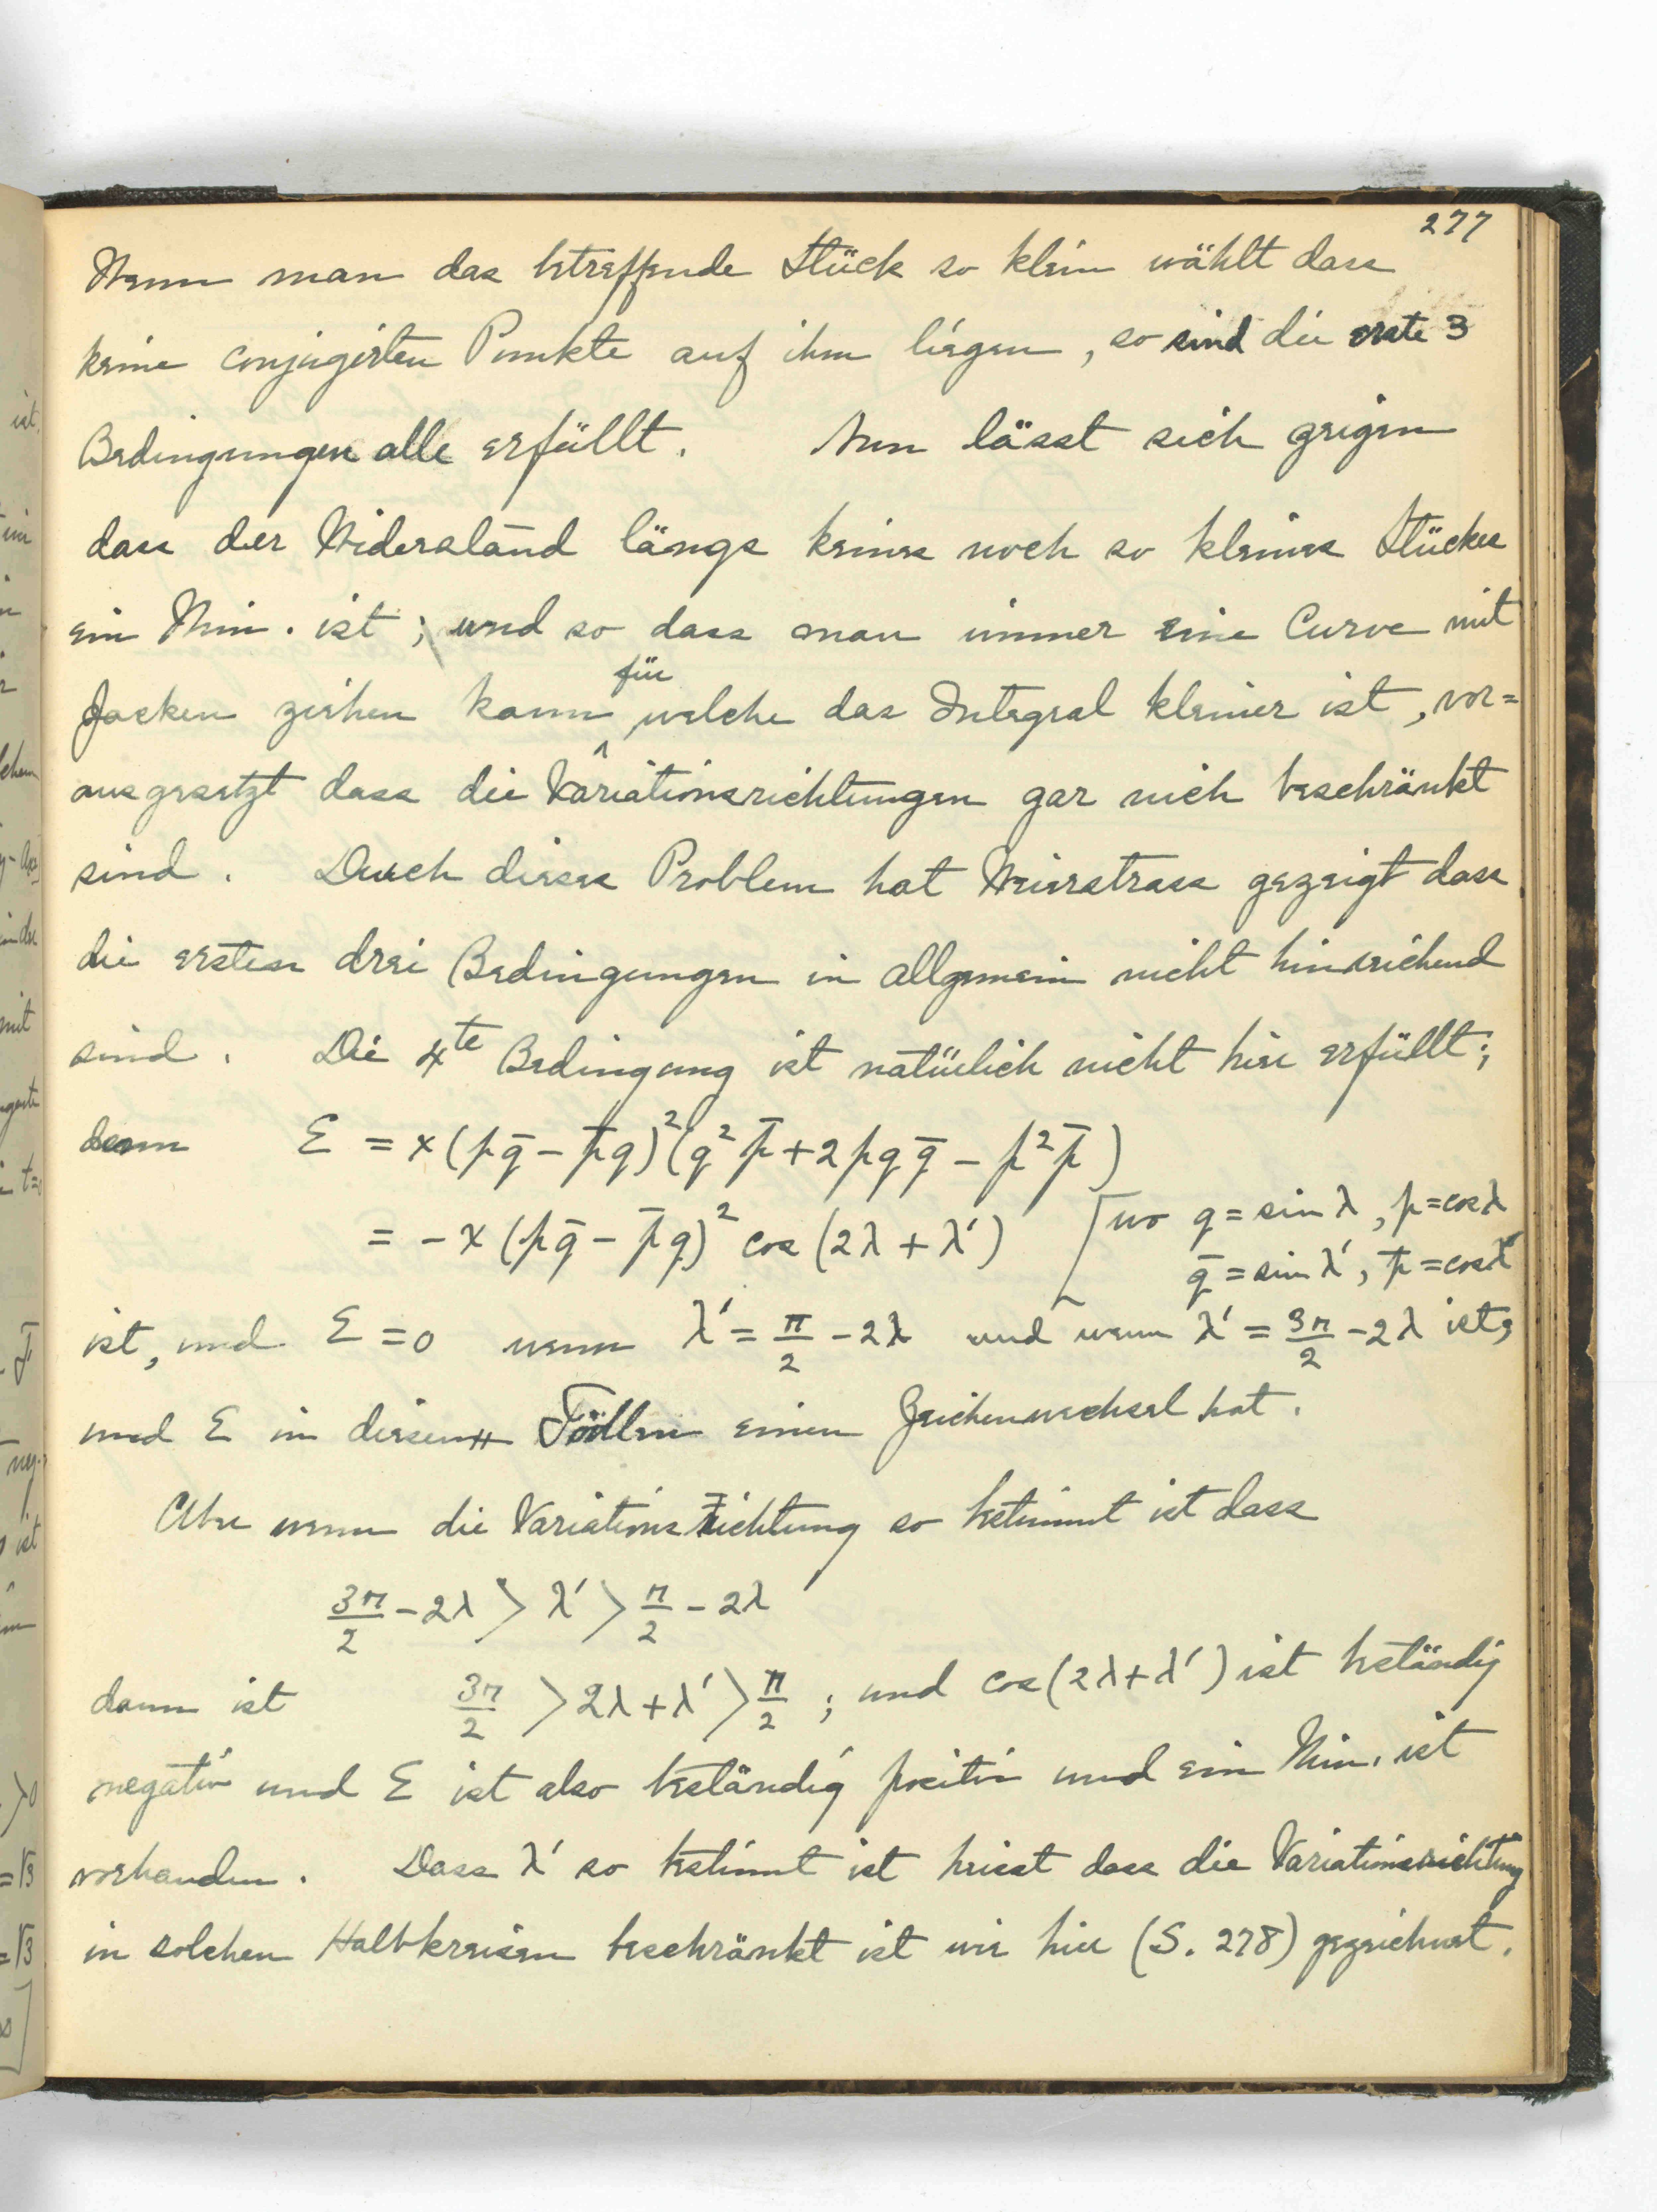 277
Wenn man das betreffende Stück so klein wählt dass
keine conjugirten Punkte auf ihm liegen, so sind die erste 3
Bedingungen alle erfüllt. Nun lässt sich zeigen
dass der Widerstand längs keines noch so kleines Stückes
ein Min. ist; und so dass man immer eine Curve mit
Zacken ziehen kann für welche das Integral kleiner ist, vor=
ausgesetzt dass die Variationsrichtungen gar nich beschränkt
sind. Durch dieses Problem hat Weierstrass gezeigt dass
die ersten drei Bedingungen in allgemein nicht hinreichend
sind. Die 4te Bedingung ist natürlich nicht hier erfüllt;
denn E = x(pq̄ − p̄q)²(q²p̄ + 2pqq̄ − p²p̄)
= −x(pq̄ − p̄q)² cos(2λ + λ′) [wo q = sin λ, p = cos λ
q̄ = sin λ′, p̄ = cos λ′
ist, und E = 0 wenn λ′ = π/2 − 2λ und wenn λ′ = 3π/2 − 2λ ist,
und E in diesen Fällen einen Zeichenwechsel hat.
Aber wenn die Variationsrichtung so bestimmt ist dass
3π/2 − 2λ > λ′ > π/2 − 2λ
dann ist 3π/2 > 2λ + λ′ > π/2; und cos(2λ + λ′) ist beständig
negativ und E ist also beständig positiv und ein Min. ist
vorhanden. Dass λ′ so bestimmt ist heisst dass die Variationsrichtung
in solchen Halbkreisen beschränkt ist wie hier (S. 278) gezeichnet.